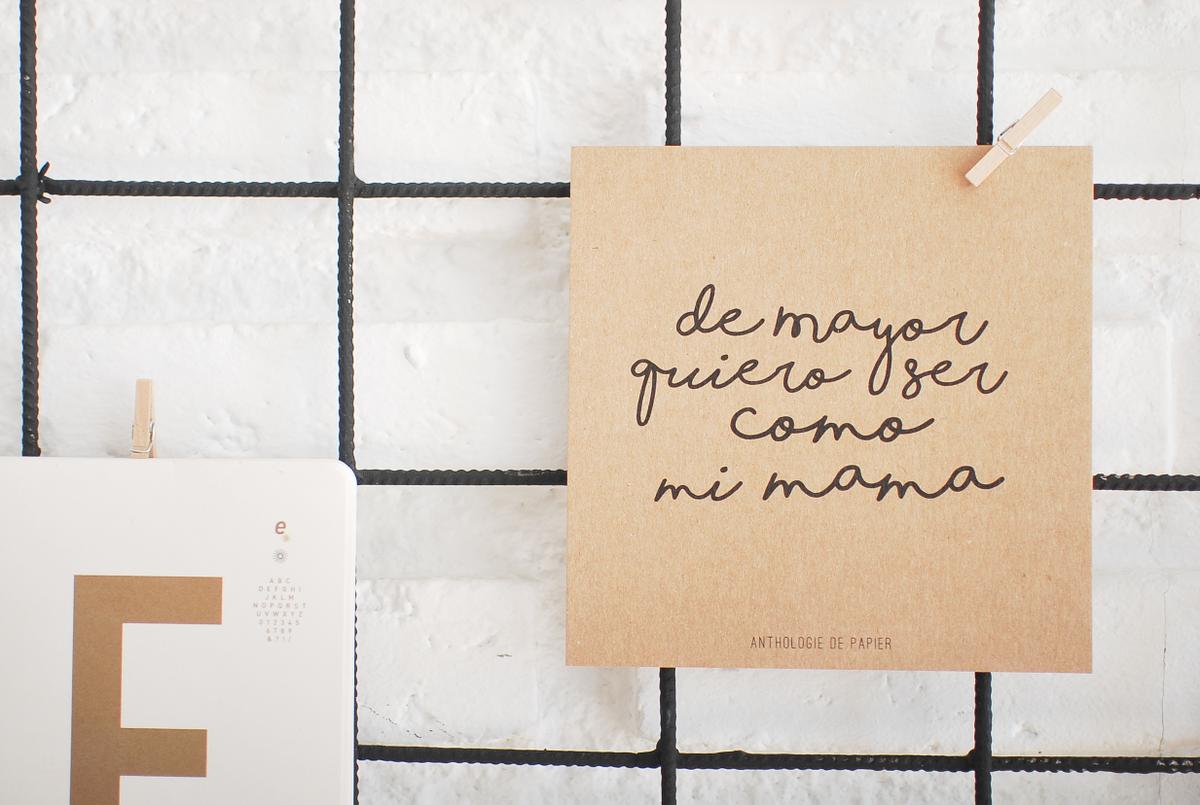 de mayor
quiero ser
como
mi mama
ANTHOLOGIE DE PAPIER
E
e
ABC
DEFGHI
JKLM
NOPQRST
UVWXYZ
012345
6789
&?!/